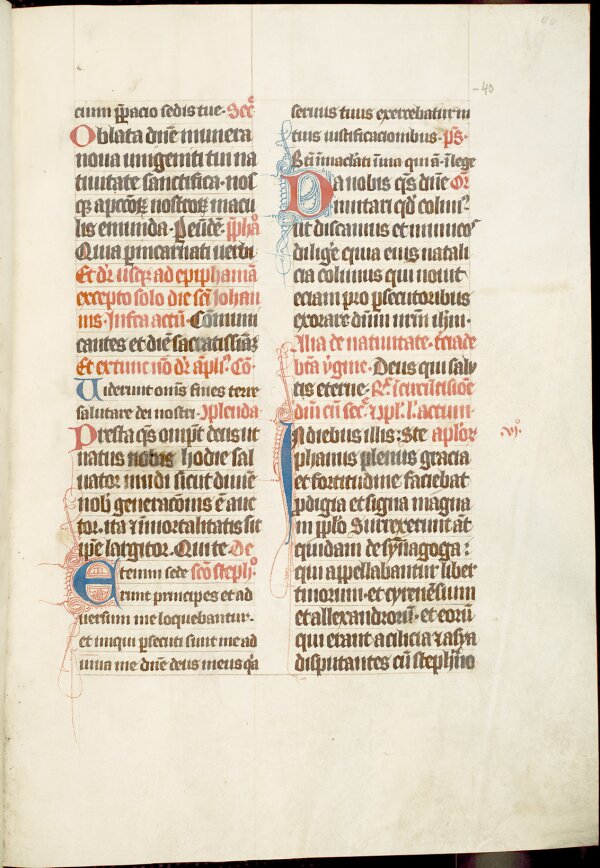 40
-40
cium p̄pacio sedis tue · Sec̄
Oblata dn̄e munera
noua unigeniti tui na
tiuitate sanctifica · nos
qꝫ a pctōꝝ nostroꝝ macu
lis emunda · Per eūdē · p̄pha
Quia p incarnati uerbi
Et dr̄ usqꝫ ad epiphaniā
excepto solo die sc̄i Johan
nis · Infra actū · Cōmuni
cantes et diē sacratissimā
Et extunc nō dr̄ āpli⁹ · Cō ·
Uiderunt om̄s fines terre
salutare dei nostri · 9plenda
Presta qs̄ omp̄t deus ut
natus nobis hodie sal
uator mūdi sicut diuine
nob̄ generacōnis ē auc
tor · ita ⁊ īmortalitatis sit
ip̄e largitor · Qui te · De
Etenim sede sc̄o steph̄o
runt principes et ad
uersum me loquebantur ·
et iniqui ꝑsecuti sunt me ad
iuua me dn̄e deus meus q̄a
seruus tuus exercebatur in
tuis iustificacionibus · pš ·
Bt̄i īmaclati ī uia qui ā · ī lege
Da nobis qs̄ dn̄e Or̄
imitari qd̄ colim⁹
ut discamus et inimicos
diligē quia eius natali
cia colimus qui nouit
eciam pro ꝑsecutoribus
exorare dn̄m nr̄m ih̄m ·
Alia de natiuitate · tercia de
bt̄a ỹgine · Deus qui salu
tis eterne · Rͤ ī circūcisione
dn̄i cū sec̄ · ⁊ 9pl̄ · L̄ · actuum
In diebus illis : Ste aplo℞
·vi·
phanus plenus gracia
et fortitudine faciebat
ꝓdigia et signa magna
in pp̄lo Surrexerunt āt
quidam de synagoga :
qui appellabantur liber
tinorum · et cyrenēsium
et allexandroꝝ · et eorū
qui erant a cilicia ⁊ asya
disputantes cū stephāo